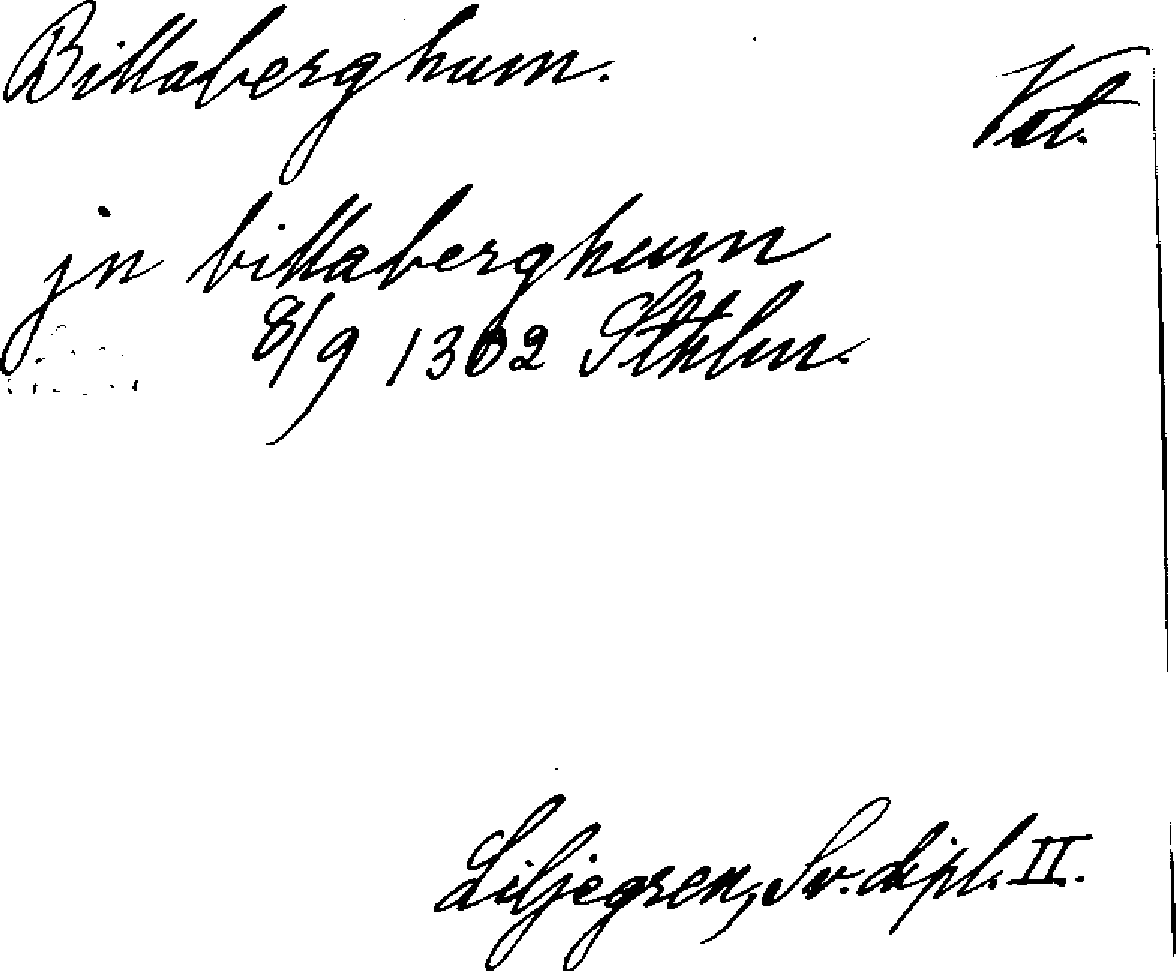 Billaberghum.
Vul.
jn billaberghum
8/9 1302 Sthlm.
Liljegren, Sv. dipl. II.